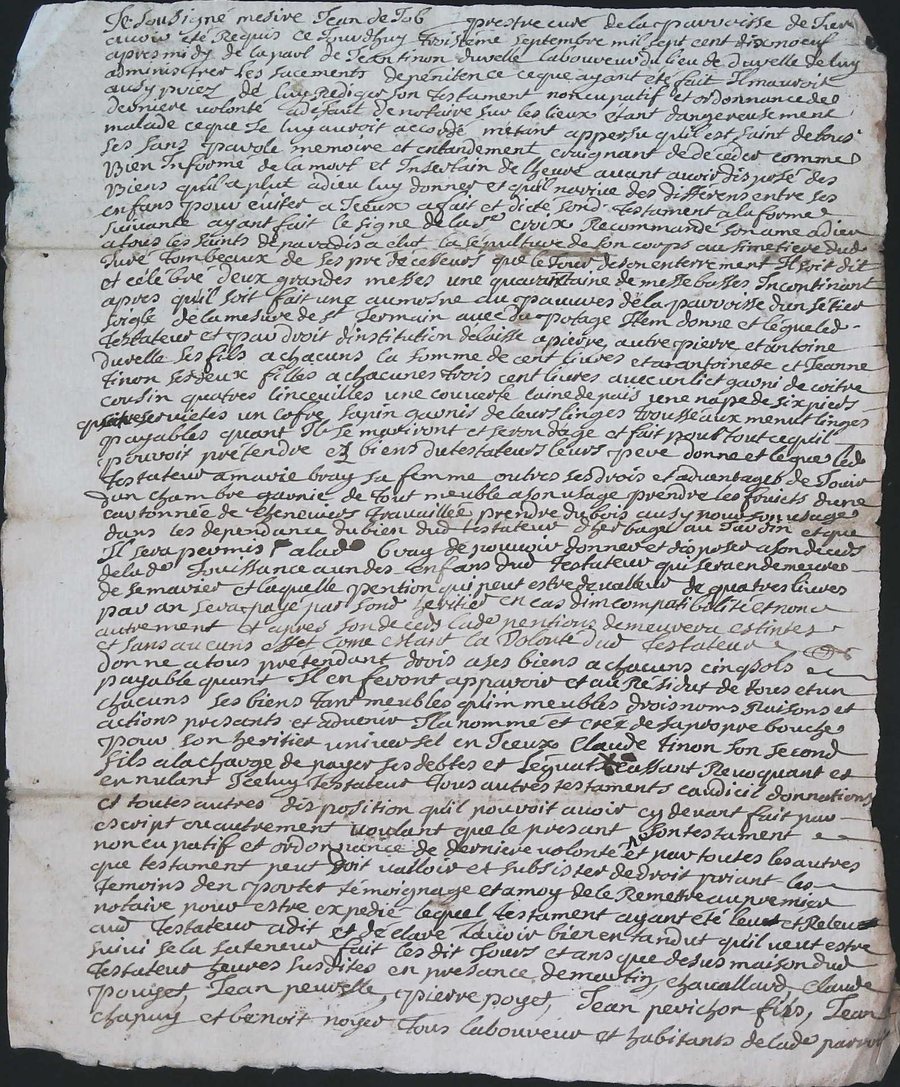 Je Soubsigné mesire Jean de Job prestre curé de la parroisse de
avoir été Requis ce Jourdhuy troisième septembre mil sept cent dix noeuf
apres midy de la part de Jean tinon duvelle laboureur du lieu de duvelle de luy
administrer les sacements de penitence ce que ayant été fait Il mauroit
ausy priés de luy Rediger son testament noncupatif et ordonnance de
derniere volonté a defaut de notaire sur les lieux étant dangereusement
malade ce que Je luy aurois accordé metant appersu quil est saint de tous
ses sans parole memoire et entandement craignant de deceder comme
Bien Informé de la mort et Insertain de lheure avant avoir disposé des
Biens quil a plut a dieu luy donner et quil narive des differens entre ses
enfans pour eviter a Iceux a fait et dicté sond testament a la forme
suivante ayant fait le signe de la Ste croix Recommandé son ame a dieu
a tous les saints de paradis a elut la sepulture de son corps au simetiere dud
Juré tombeaux de ses predecesseurs que le Jour de son enterrement Il soit dit
et célébré deux grandes messes une quarantaine de messe basses Incontinant
apres quil soit fait une aumosne au pauvres de la parroisse dun setier
soigle de la mesure de st Germain avec du potage Item donne et legue led
testateur et par droit dinstitution delaisse a pierre, autre pierre et antoine
duvelle ses fils a chacuns la somme de cent livres et a antoinete et Jeanne
tinon ses deux filles a chacunes trois cent livres avec un lict garni de coitre
cousin quatres linceuilles une couverte laine de pais une nape de six pieds
quatre servietes un cofre sapin garnis de leurs linges trousseaux menut linges
payables quant Ils se mariront et seron dage et fait pour tout ce quil
pouroit pretendre ez biens du testateurs leurs pere donne et legue led
testateur a marie bray sa femme outres ses drois et advantages de Jouir
dun chambre garnie de tout meuble a son usage prendre les fruiets dune
cartonnée de cheneviere travaillée prendre du bois ausy pour son usage
dans les dependance du bien dud testateur dherbages au Jardin et que
Il sera permis a lad bray de pouvoir donner et disposer a son deceds
de lad Jouissance a un des enfans dud testateur qui sera en demeure
de se marier et laquelle pention qui peut estre de valleur de quatres livres
par an sera payé par sond heritier en cas dimcompatibilité et non
autrement et apres son deceds lade pentions demeurera estintes
et sans aucuns effet come estant la volonté dud testateur
donne a tous pretendant drois a ses biens a chacuns cinq sols
payable quant Il en feront apparoir et au Residut de tous et un
chacuns ses biens tant meubles quimmeubles drois noms Raisons et
actions presants et advenir Il a nommé et creé de sa propre bouche
pour son heritier universel en Iceux Claude tinon son second
fils a la charge de payer ses debtes et Leguat cassant Revocquant et
ennulant Iceluy testateur tous autres testaments caudicil donnations
et toutes autres disposition quil pouvoit avoir cy devant fait par
escript ou autrement voulant que le presant son testament
noncupatif et ordonnance de derniere volonté et par toutes les autres
que testament peut doit valloir et subsister de droit priant les
temoins den porter témoignage et a moy de le Remettre au premier
notaire pour estre expedié lequel testament ayant été leu et Releu
aud testateur a dit et declaré lavoir bien entandut quil veut estre
suivi se la sa teneur fait les dit Jours et ans que desus maison dud
testateur heures susdites en presance de chavallard, Claude
pouyet, Jean, pierre poyet, Jean perichon fils, Jean
chapuy et benoit noyer tous laboureur et habitants de lade